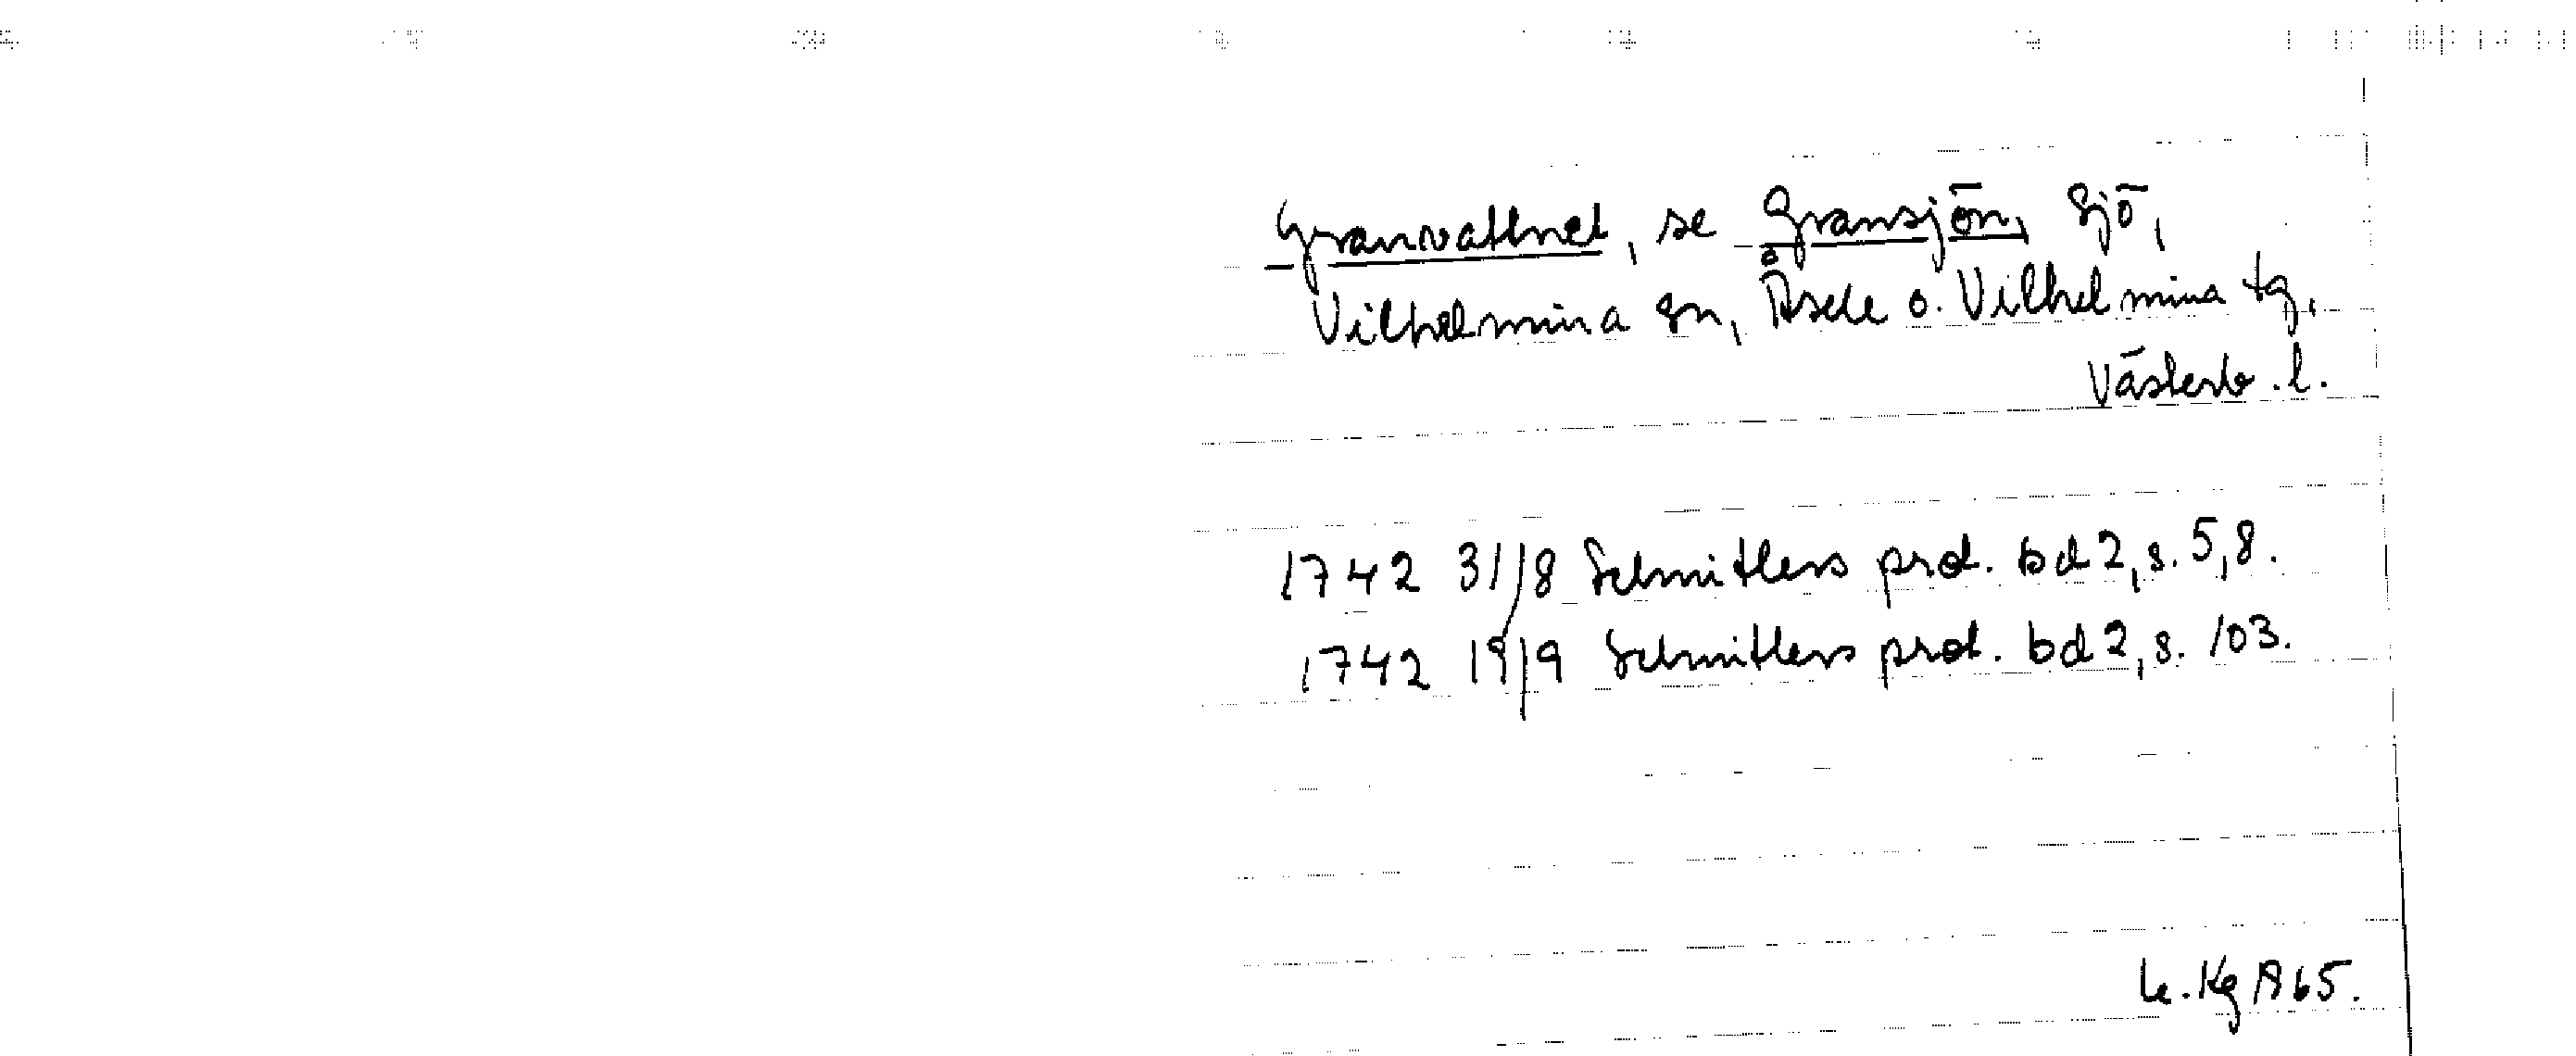 Granvattnet, se Gransjön, sjö,
Vilhelmina sn, Åsele o. Vilhelmina tg,
Västerb. l.
1742 31/8 Schnitlers prot. bd 2, s. 5, 8.
1742 19/9 Schnitlers prot. bd 2, s. 103.
65.